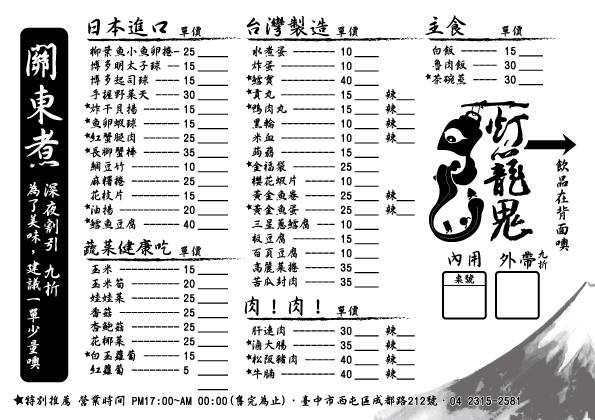 關東煮
深夜割引 九折
為了美味，建議一單少量噢
日本進口 單價
柳葉魚小魚卵捲 25
博多明太子球 15
博多起司球 15
手握野菜天 30
★炸干貝揚 15
★魚卵蝦球 15
★紅蟹腿肉 25
★長腳蟹棒 35
綢豆竹 10
麻糬捲 25
花枝片 15
★油揚 20
★鱈魚豆腐 40
蔬菜健康吃 單價
玉米 15
玉米筍 20
娃娃菜 25
香菇 25
杏鮑菇 25
花椰菜 25
★白玉蘿蔔 15
紅蘿蔔 5
台灣製造 單價
水煮蛋 10
炸蛋 10
★鱈寶 40
★貢丸 15 辣
★鴨肉丸 15 辣
黑輪 10 辣
米血 10 辣
蒟蒻 15
★金福袋 25
櫻花蝦片 10
黃金魚卷 25 辣
★黃金魚蛋 25 辣
三星蔥鱈腐 30
板豆腐 15
百頁豆腐 10
高麗菜捲 35
苦瓜封肉 35
肉！肉！ 單價
肝連肉 30 辣
★滷大腸 35 辣
★松阪豬肉 40 辣
★牛腩 40 辣
主食 單價
白飯 15
魯肉飯 30
★茶碗蒸 30
灯籠鬼
飲品在背面噢
內用 外帶 九折
桌號
★特別推薦 營業時間 PM17:00~AM 00:00(售完為止)·臺中市西屯區成都路212號·04 2315-2581